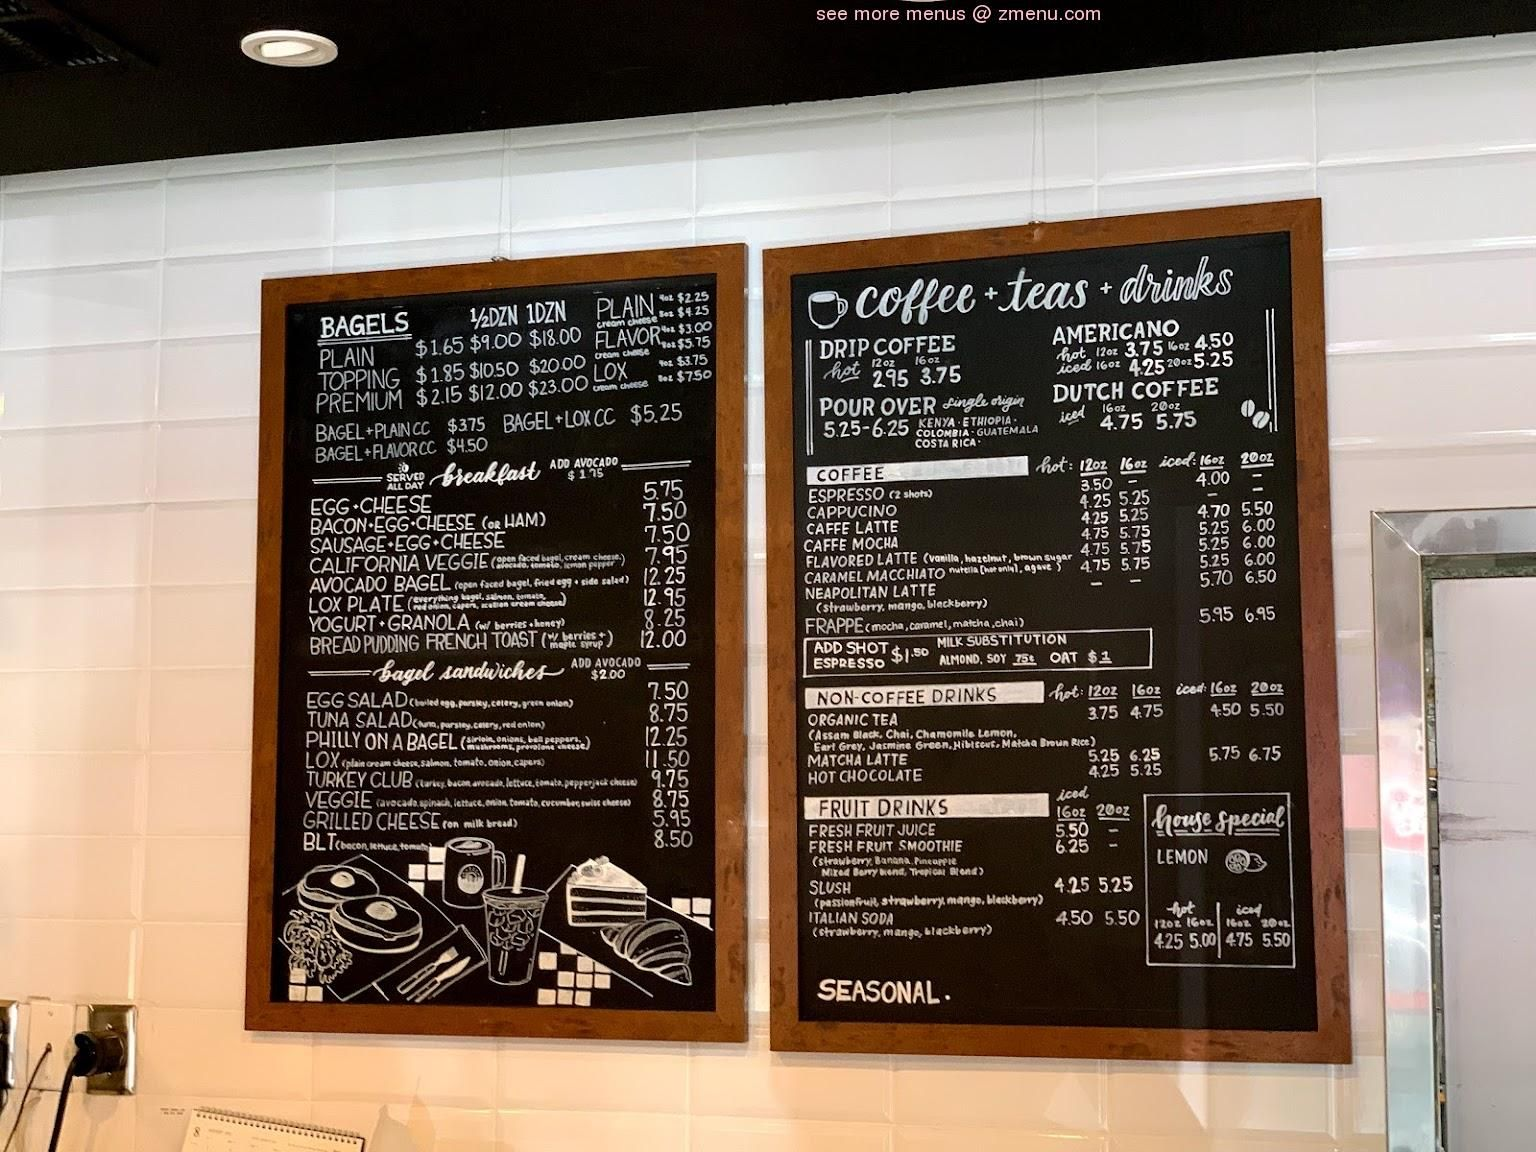 see more menus @ zmenu.com
BAGELS ½DZN 1DZN
PLAIN $1.65 $9.00 $18.00
TOPPING $1.85 $10.50 $20.00
PREMIUM $2.15 $12.00 $23.00
PLAIN cream cheese 4oz $2.25
8oz $4.25
FLAVOR cream cheese 4oz $3.00
$5.75
LOX cream cheese 4oz $3.75
8oz $7.50
BAGEL+PLAIN CC $375 BAGEL+LOX CC $5.25
BAGEL+FLAVOR CC $4.50
SERVED ALL DAY breakfast ADD AVOCADO $1.75
EGG+CHEESE 5.75
BACON+EGG+CHEESE (OR HAM) 7.50
SAUSAGE+EGG+CHEESE 7.50
CALIFORNIA VEGGIE (open faced bagel, cream cheese, avocado, tomato, lemon pepper) 7.95
AVOCADO BAGEL (open faced bagel, fried egg + side salad) 12.25
LOX PLATE (everything bagel, salmon, tomato, red onion, capers, scallion cream cheese) 12.95
YOGURT+GRANOLA (w/ berries+honey) 8.25
BREAD PUDDING FRENCH TOAST (w/ berries + maple syrup) 12.00
bagel sandwiches ADD AVOCADO $2.00
EGG SALAD (boiled egg, parsley, celery, green onion) 7.50
TUNA SALAD (tuna, parsley, celery, red onion) 8.75
PHILLY ON A BAGEL (sirloin, onions, bell peppers, mushrooms, provolone cheese) 12.25
LOX (plain cream cheese, salmon, tomato, onion, capers) 11.50
TURKEY CLUB (turkey, bacon, avocado, lettuce, tomato, pepperjack cheese) 9.75
VEGGIE (avocado, spinach, lettuce, onion, tomato, cucumber, swiss cheese) 8.75
GRILLED CHEESE (on milk bread) 5.95
BLT (bacon, lettuce, tomato) 8.50
coffee + teas + drinks
DRIP COFFEE
hot 12oz 16oz
2.95 3.75
POUR OVER single origin
5.25-6.25 KENYA · ETHIOPIA ·
COLOMBIA · GUATEMALA
COSTA RICA ·
AMERICANO
hot 12oz 3.75 16oz 4.50
iced 16oz 4.25 20oz 5.25
DUTCH COFFEE
iced 16oz 20oz
4.75 5.75
COFFEE hot: 12oz 16oz iced: 16oz 20oz
ESPRESSO (2 shots) 3.50 – 4.00 –
CAPPUCINO 4.25 5.25 – –
CAFFE LATTE 4.25 5.25 4.70 5.50
CAFFE MOCHA 4.75 5.75 5.25 6.00
FLAVORED LATTE (vanilla, hazelnut, brown sugar nutella [hot only], agave) 4.75 5.75 5.25 6.00
CARAMEL MACCHIATO 4.75 5.75 5.25 6.00
NEAPOLITAN LATTE – – 5.70 6.50
(strawberry, mango, blackberry)
FRAPPE (mocha, caramel, matcha, chai) 5.95 6.95
ADD SHOT ESPRESSO $1.50 MILK SUBSTITUTION
ALMOND, SOY 75¢ OAT $1
NON-COFFEE DRINKS hot: 12oz 16oz iced: 16oz 20oz
ORGANIC TEA 3.75 4.75 4.50 5.50
(Assam Black, Chai, Chamomile Lemon,
Earl Grey, Jasmine Green, Hibiscus, Matcha Brown Rice)
MATCHA LATTE 5.25 6.25 5.75 6.75
HOT CHOCOLATE 4.25 5.25
FRUIT DRINKS iced 16oz 20oz
FRESH FRUIT JUICE 5.50 –
FRESH FRUIT SMOOTHIE 6.25 –
(strawberry, Banana, Pineapple
Mixed Berry blend, Tropical Blend)
SLUSH 4.25 5.25
(passionfruit, strawberry, mango, blackberry)
ITALIAN SODA 4.50 5.50
(strawberry, mango, blackberry)
house special
LEMON
hot iced
12oz 16oz 16oz 20oz
4.25 5.00 4.75 5.50
SEASONAL.